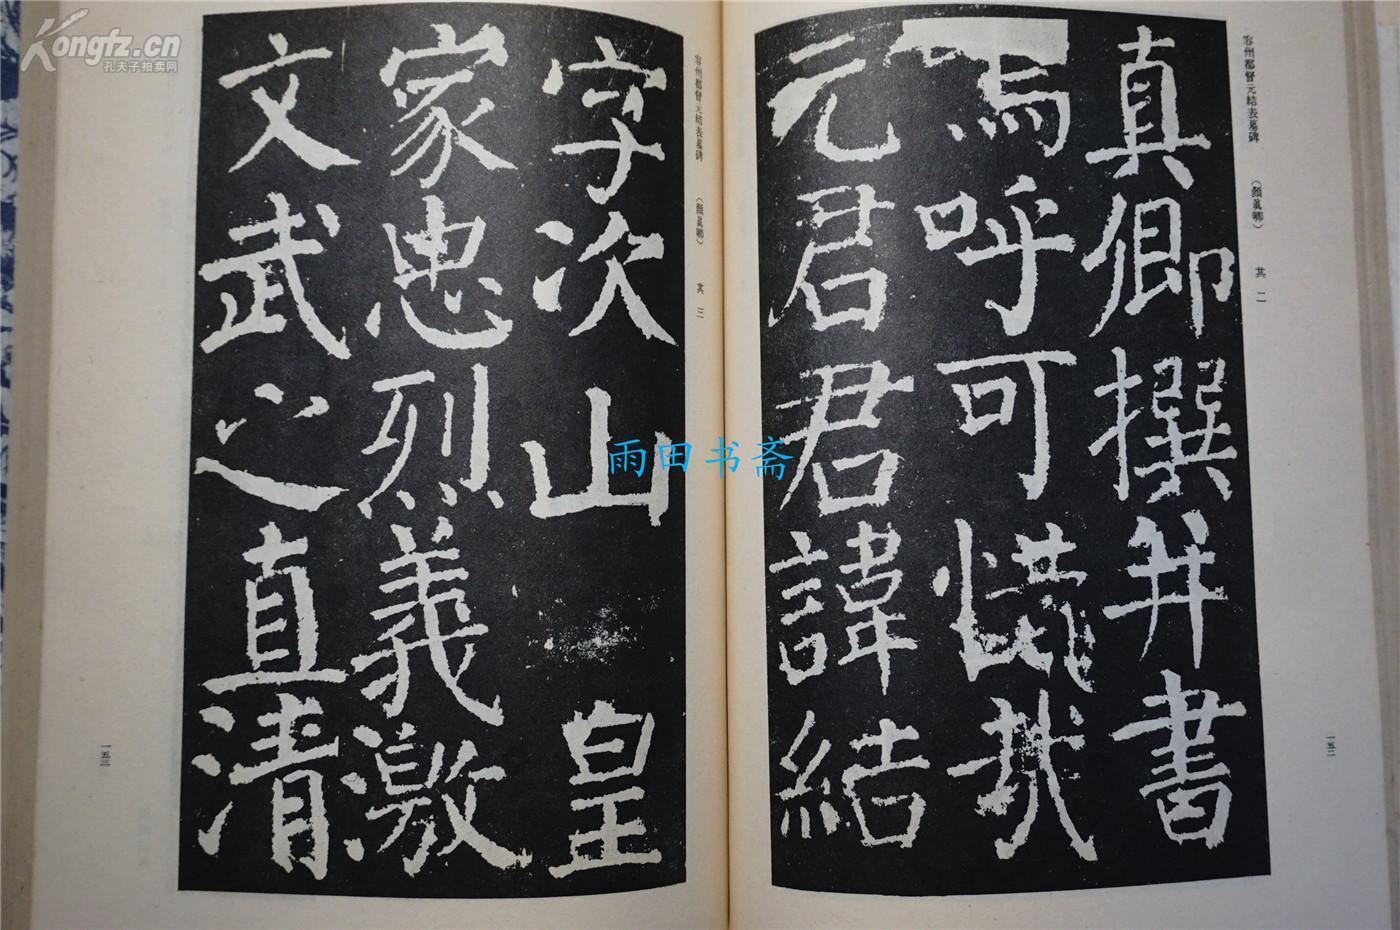 容州都督元結表墓碑 （顏眞卿） 其二
真卿撰并書
嗚呼可惜哉
元君君諱結
一五二
容州都督元結表墓碑 （顏眞卿） 其三
字次山皇
家忠烈義激
文武之直清
一五三
Kongfz.cn
孔夫子拍卖网
雨田书斋